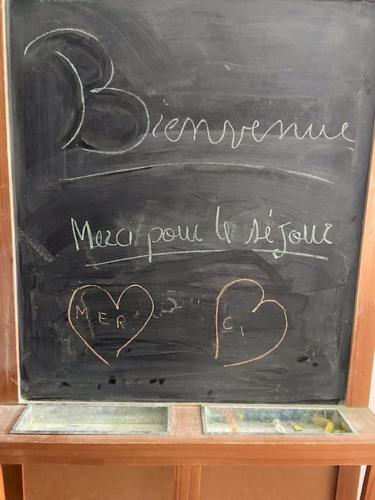 Bienvenue
Merci pour le séjour
MER CI